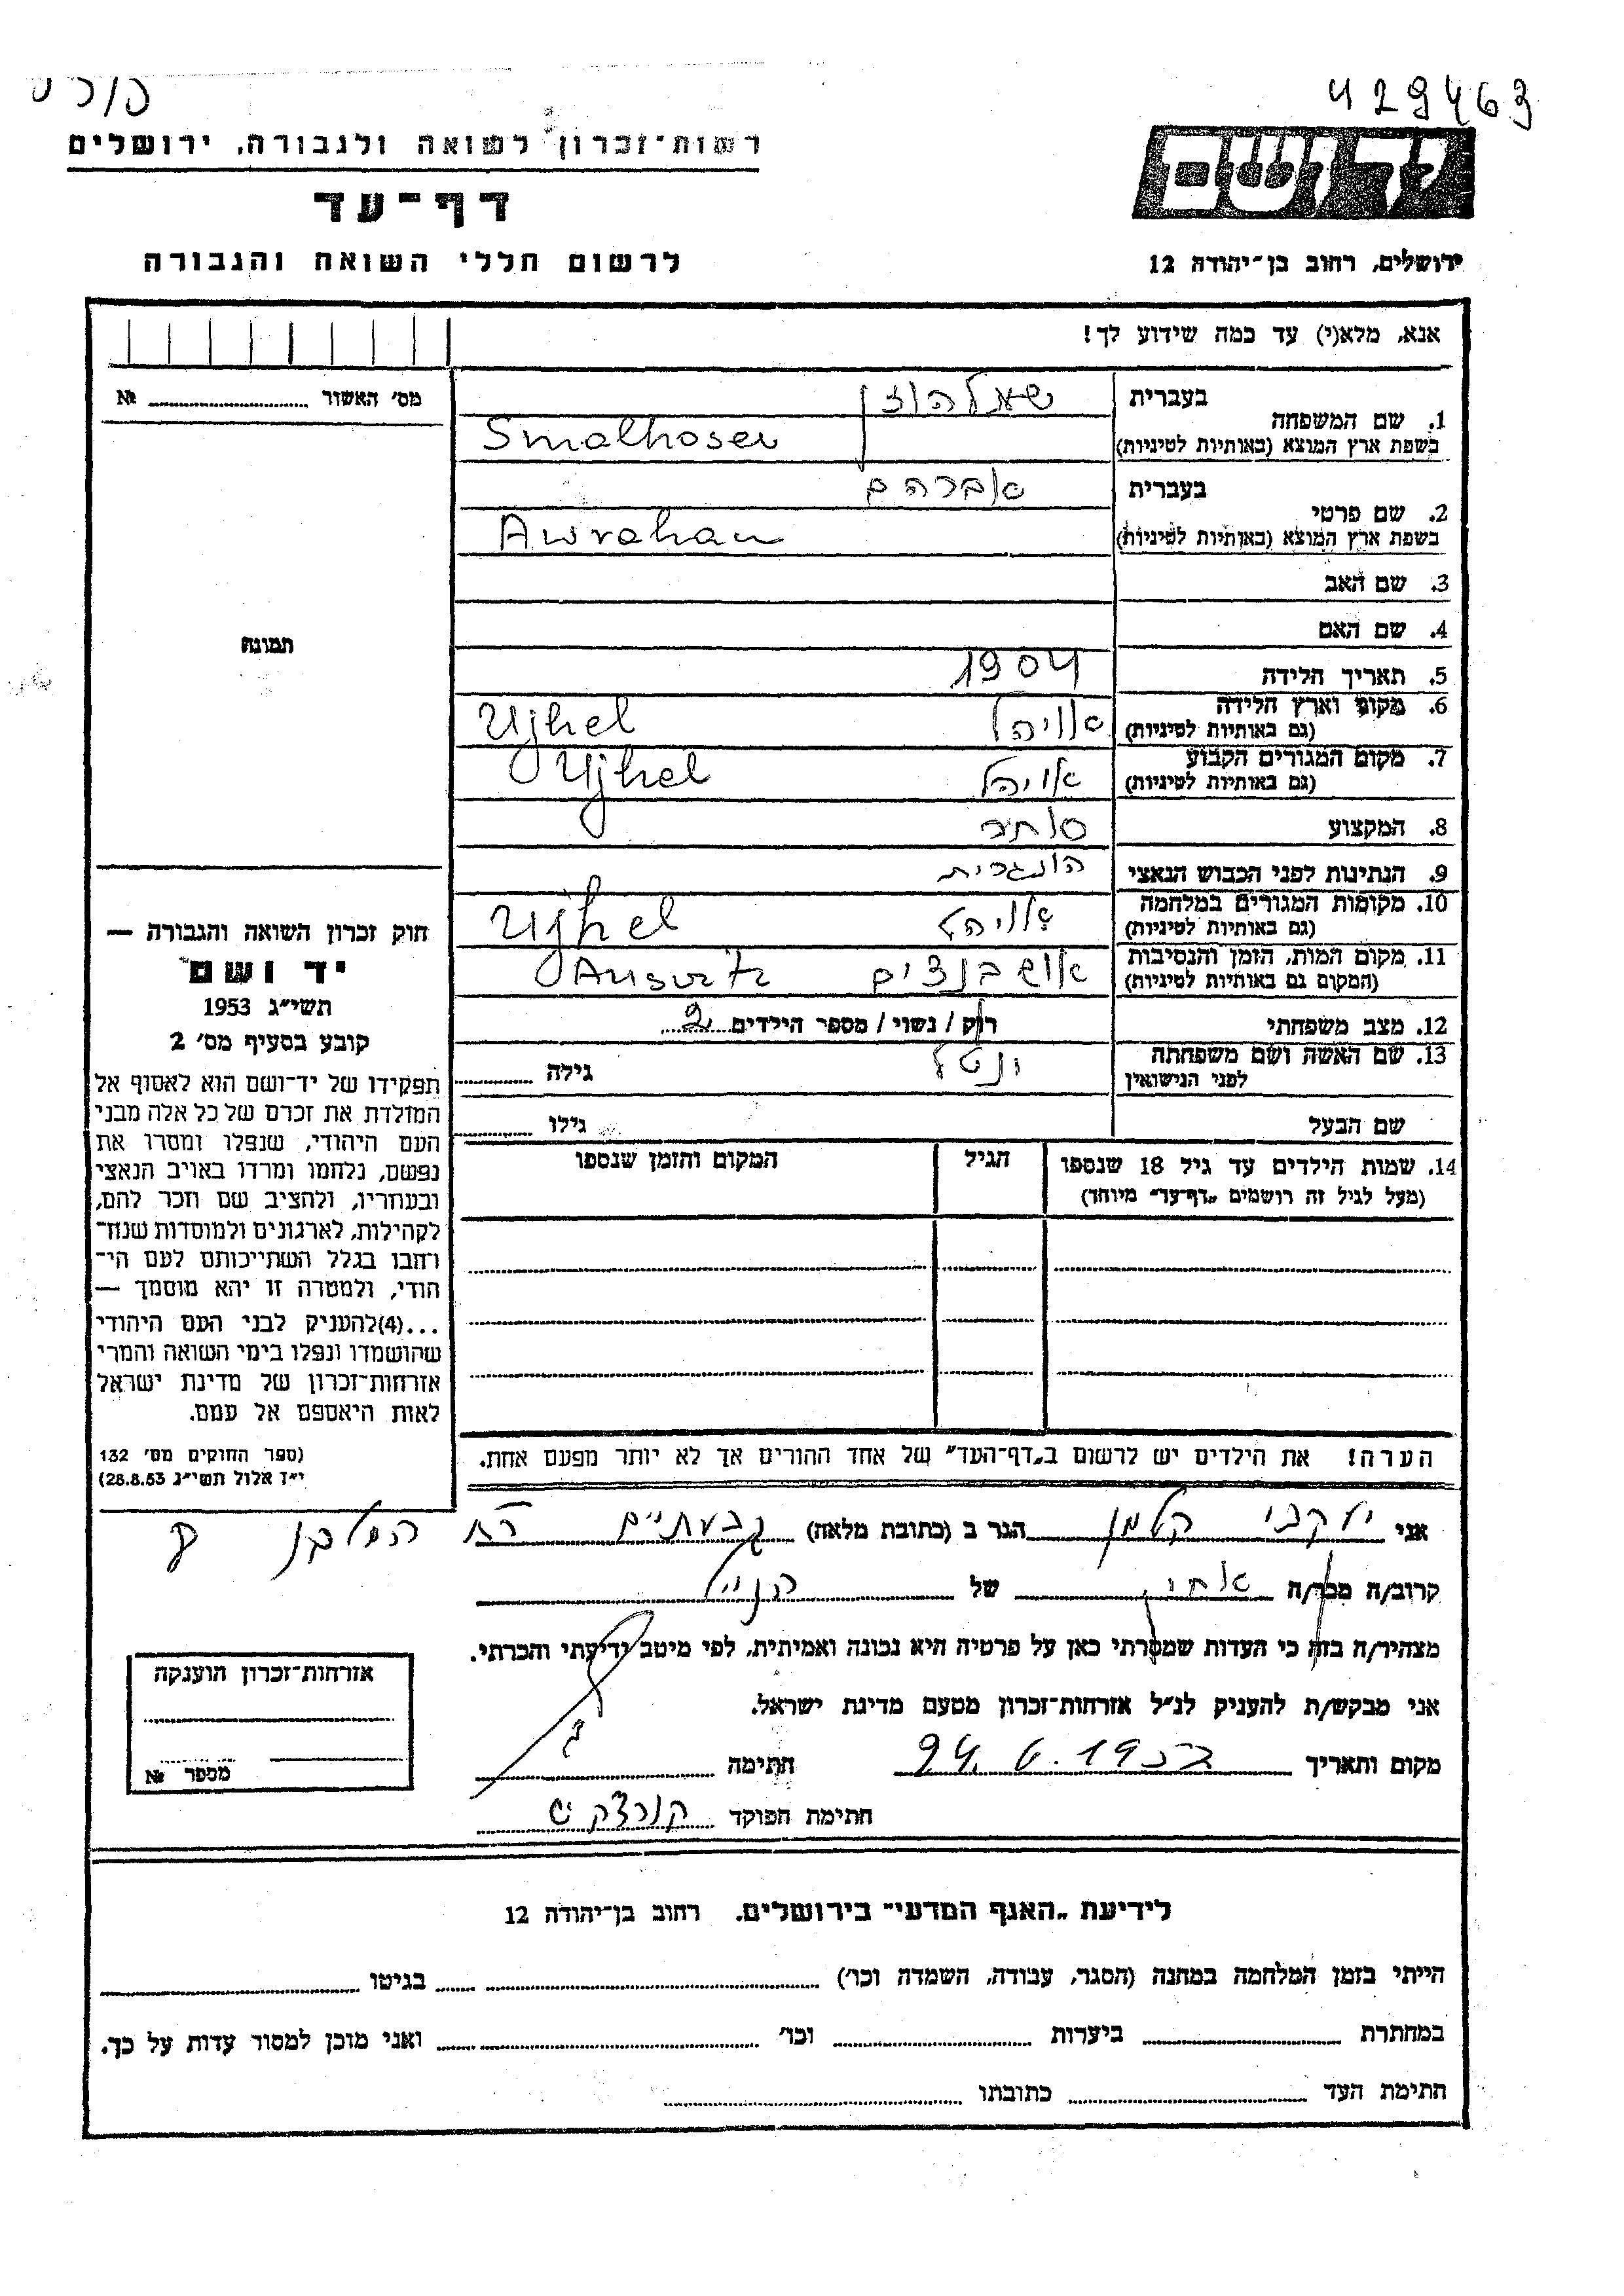 429463
רשות־זכרון לשואה ולגבורה, ירושלים
דף־עד
לרשום חללי השואה והגבורה
יד ושם
ירושלים, רחוב בן־יהודה 12
אנא, מלא(י) עד כמה שידוע לך!
מס' האשור № 
1. שם המשפחה
בעברית
בשפת ארץ המוצא (באותיות לטיניות)
Smalhosen
2. שם פרטי
בעברית אברהם
בשפת ארץ המוצא (באותיות לטיניות) Awraham
3. שם האב
4. שם האם
תמונה
5. תאריך הלידה 1904
6. מקום וארץ הלידה אויהל Ujhel
(גם באותיות לטיניות)
7. מקום המגורים הקבוע אויהל Ujhel
(גם באותיות לטיניות)
8. המקצוע סוחר
9. הנתינות לפני הכבוש הנאצי הונגרית
10. מקומות המגורים במלחמה אויהל Ujhel
(גם באותיות לטיניות)
11. מקום המות, הזמן והנסיבות
(המקום גם באותיות לטיניות)
12. מצב משפחתי רוק / נשוי / מספר הילדים 2
13. שם האשה ושם משפחתה
לפני הנישואין
גילה
שם הבעל גילו
14. שמות הילדים עד גיל 18 שנספו
(מעל לגיל זה רושמים „דף־עד" מיוחד)
הגיל
המקום והזמן שנספו
הערה! את הילדים יש לרשום ב„דף־העד" של אחד ההורים אך לא יותר מפעם אחת.
חוק זכרון השואה והגבורה —
יד ושם
תשי"ג 1953
קובע בסעיף מס' 2
תפקידו של יד־ושם הוא לאסוף אל
המולדת את זכרם של כל אלה מבני
העם היהודי, שנפלו ומסרו את
נפשם, נלחמו ומרדו באויב הנאצי
ובעוזריו, ולהציב שם וזכר להם,
לקהילות, לארגונים ולמוסדות שנח־
רבו בגלל השתייכותם לעם הי־
הודי, ולמטרה זו יהא מוסמך —
...(4)להעניק לבני העם היהודי
שהושמדו ונפלו בימי השואה והמרי
אזרחות־זכרון של מדינת ישראל
לאות היאספם אל עמם.
(ספר החוקים מס' 132
י"ז אלול תשי"ג 28.8.53)
אני יעקבי קלמן הגר ב (כתובת מלאה) גבעתיים
קרוב/ה מכר/ה של הנ"ל
מצהיר/ה בזה כי העדות שמסרתי כאן על פרטיה היא נכונה ואמיתית, לפי מיטב ידיעתי והכרתי.
אני מבקש/ת להעניק לנ"ל אזרחות־זכרון מטעם מדינת ישראל.
מקום ותאריך חתימה
חתימת הפוקד
אזרחות־זכרון הוענקה
מספר №
לידיעת „האגף המדעי" בירושלים, רחוב בן־יהודה 12
הייתי בזמן המלחמה במחנה (הסגר, עבודה, השמדה וכו') בגיטו
במחתרת ביערות וכו' ואני מוכן למסור עדות על כך.
חתימת העד כתובתו